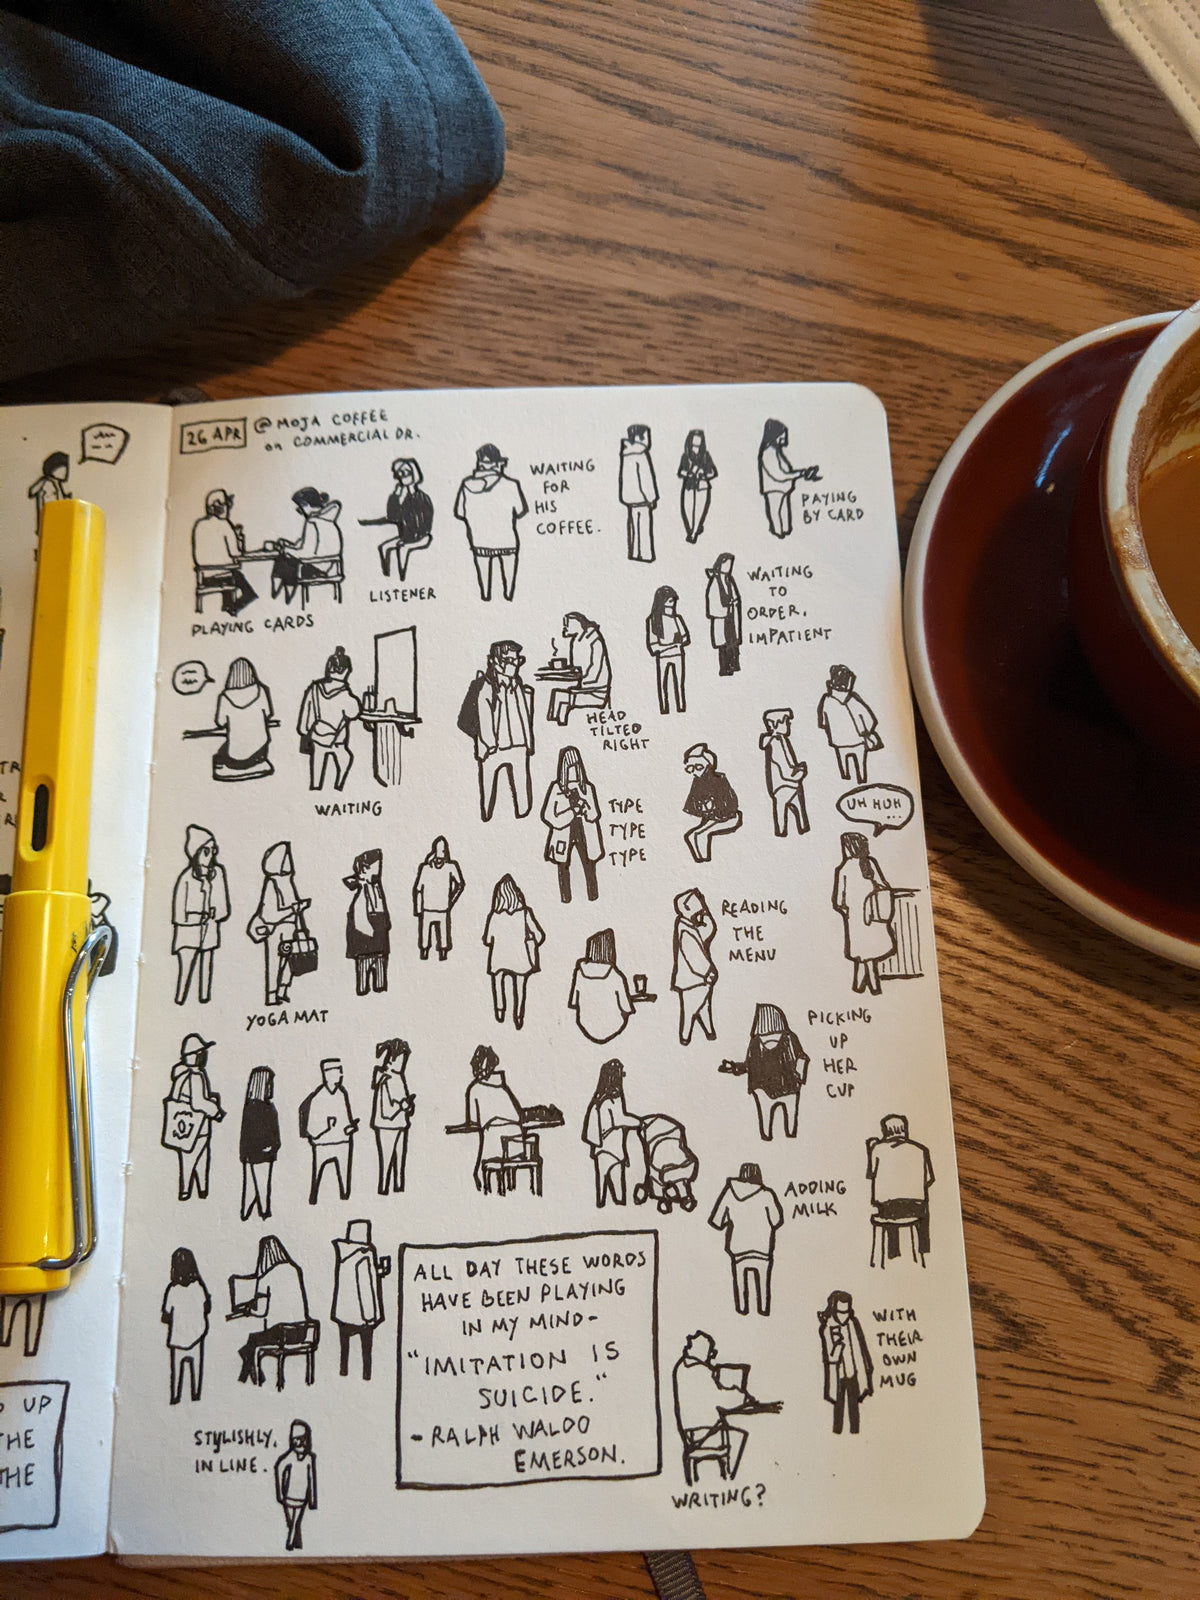 26 APR @ MOJA COFFEE
on COMMERCIAL DR.
PLAYING CARDS
LISTENER
WAITING
FOR
HIS
COFFEE.
PAYING
BY CARD
WAITING
TO
ORDER.
IMPATIENT
WAITING
HEAD
TILTED
RIGHT
TYPE
TYPE
TYPE
UH HUH
...
YOGA MAT
READING
THE
MENU
PICKING
UP
HER
CUP
ADDING
MILK
ALL DAY THESE WORDS
HAVE BEEN PLAYING
IN MY MIND-
"IMITATION IS
SUICIDE."
- RALPH WALDO
EMERSON.
WITH
THEIR
OWN
MUG
STYLISHLY.
IN LINE.
WRITING?
UP
THE
THE